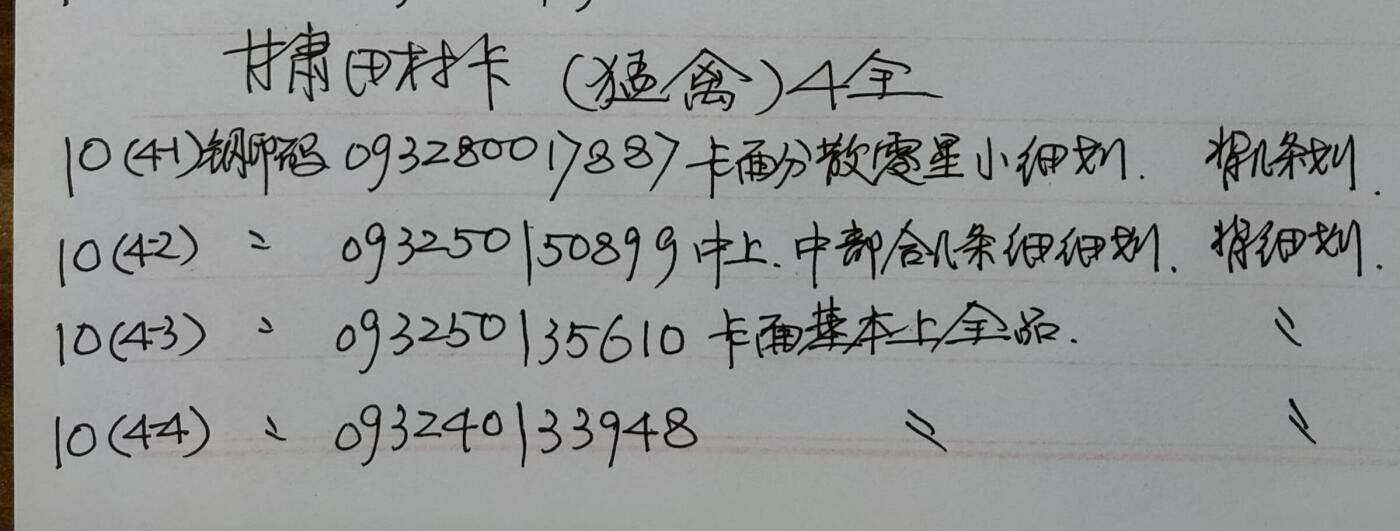 甘肃田村卡（猛禽）4全
10(4-1)钢印码 093280017887卡面分散零星小细划. 背几条划.
10(4-2) 〃 093250150899中上.中部合几条细细划. 背细划.
10(4-3) 〃 093250135610 卡面基本上全品. 〃
10(4-4) 〃 093240133948 〃 〃